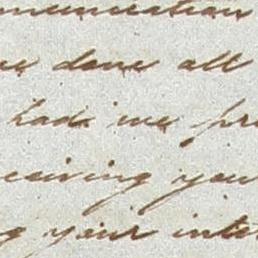 munication
ve done all
had we pr
ceiving you
g your inte